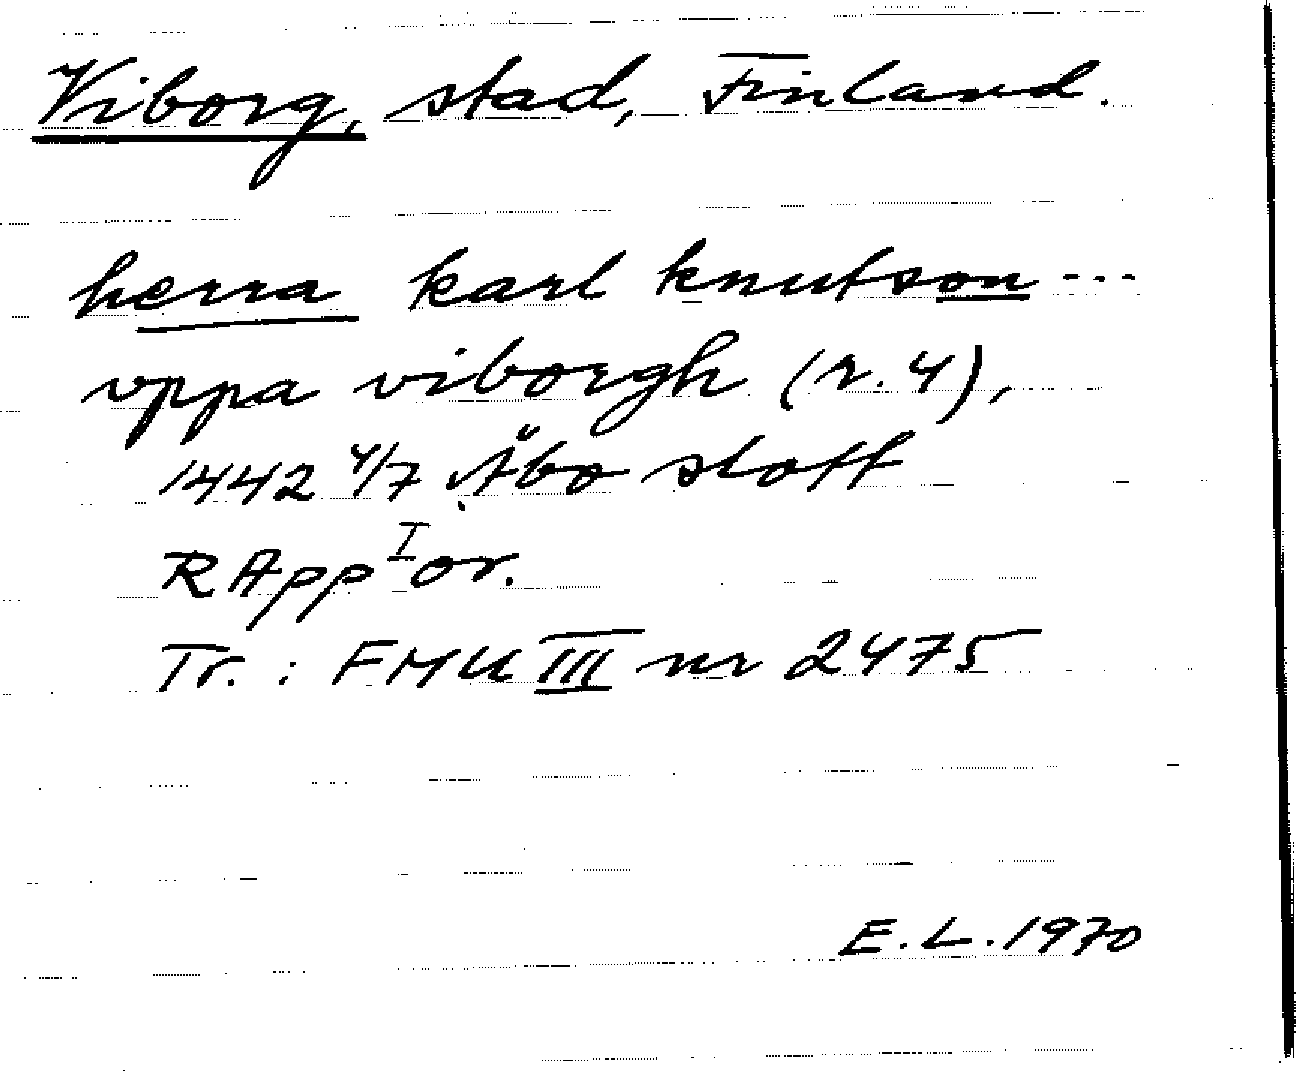 Viborg, stad, Finland.
herra karl knutson ...
vppa viborgh (r. 4),
1442 4/7 Åbo slott
RApp I or.
Tr. : FMU III nr 2475
E. L. 1970